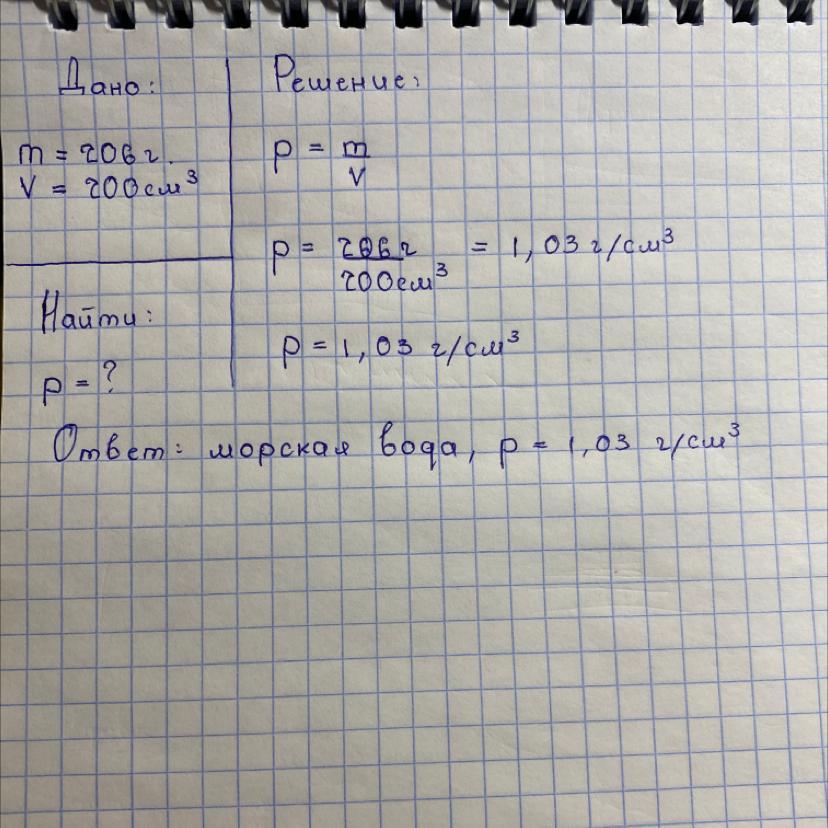 Дано:
m = 206 г.
V = 200 см³
Найти:
ρ = ?
Решение:
ρ = m/V
ρ = 206 г/200 см³ = 1,03 г/см³
ρ = 1,03 г/см³
Ответ: морская вода, ρ = 1,03 г/см³